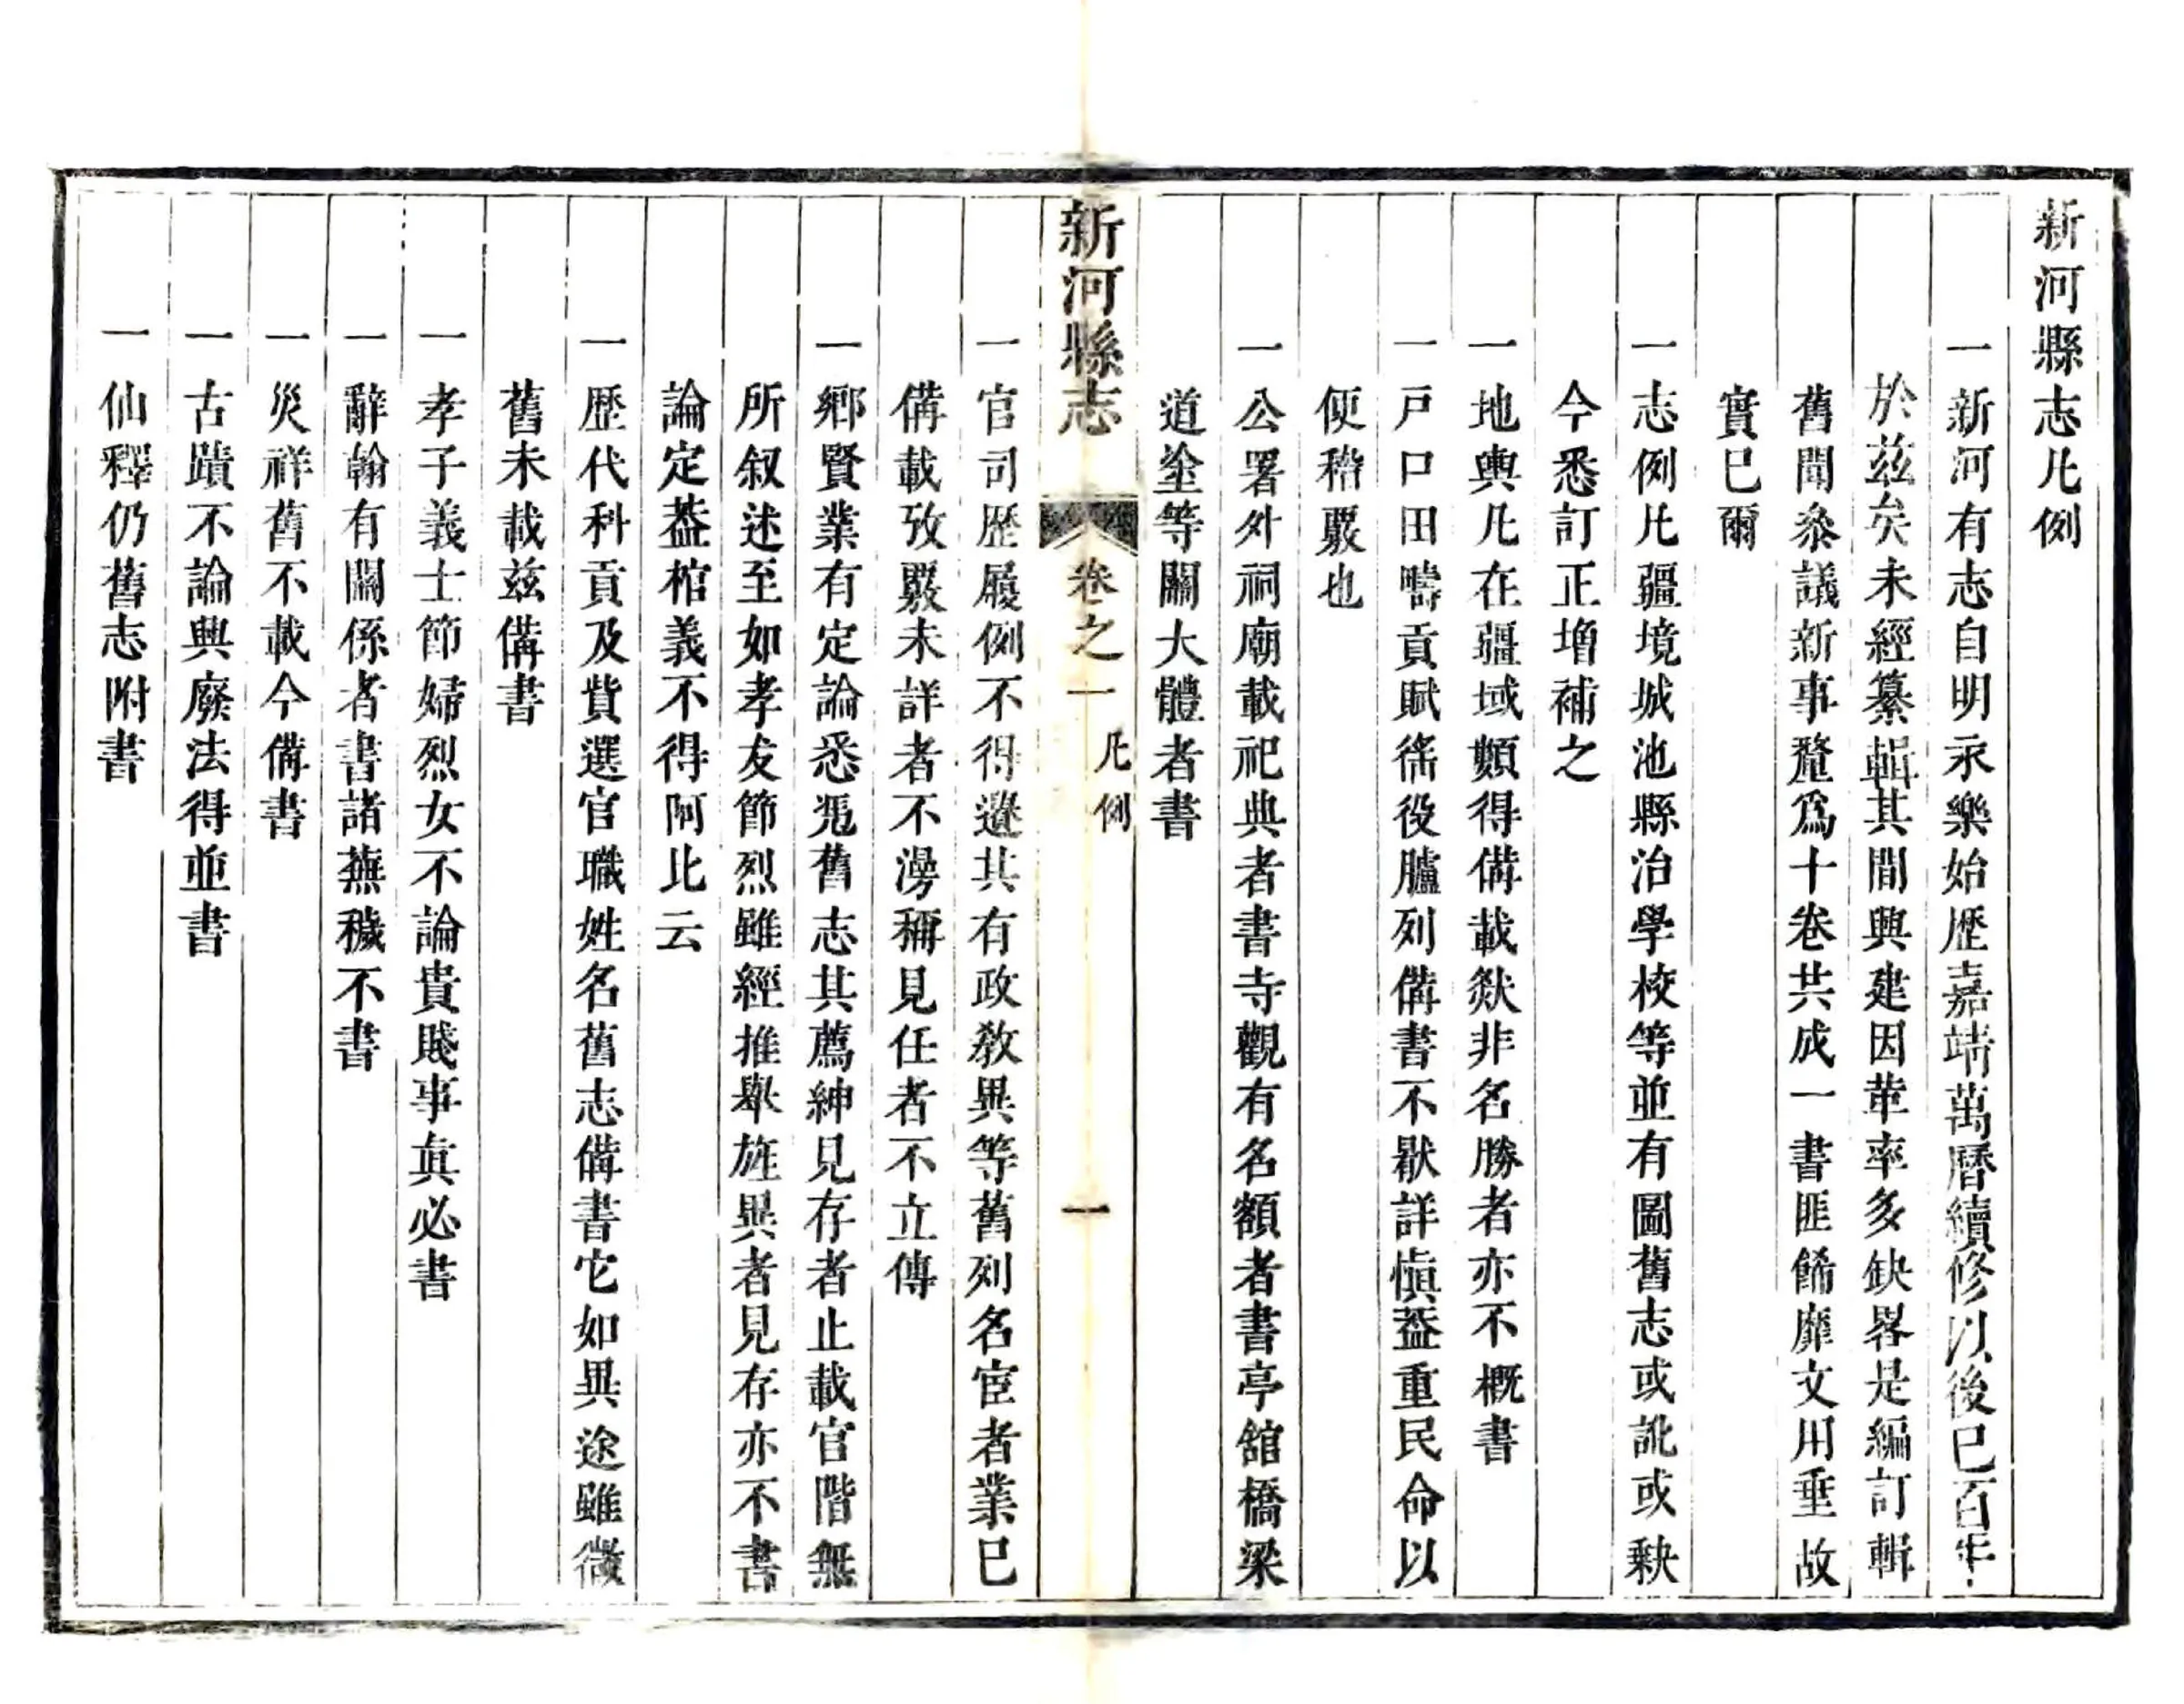 新河縣志凡例
一新河有志自明永樂始歷嘉靖萬曆續修以後已百年
於茲矣未經纂輯其間興建因革率多缺畧是編訂輯
舊聞叅議新事釐爲十卷共成一書匪餙靡文用垂故
實已爾
一志例凡疆境城池縣治學校等並有圖舊志或訛或缺
今悉訂正增補之
一地輿凡在疆域頗得備載然非名勝者亦不概書
一戸口田疇貢賦徭役臚列備書不厭詳愼葢重民命以
便稽覈也
一公署外祠廟載祀典者書寺觀有名額者書亭舘橋梁
道塗等關大體者書
新河縣志 卷之一 凡例 一
一官司歷履例不得遺其有政教異等舊列名宦者業已
備載攷覈未詳者不漫稱見任者不立傳
一鄉賢業有定論悉凴舊志其薦紳見存者止載官階無
所叙述至如孝友節烈雖經推舉旌異者見存亦不書
論定葢棺義不得阿比云
一歷代科貢及貲選官職姓名舊志備書它如異途雖微
舊未載茲備書
一孝子義士節婦烈女不論貴賤事眞必書
一辭翰有關係者書諸蕪穢不書
一災祥舊不載今備書
一古蹟不論興廢法得並書
一仙釋仍舊志附書